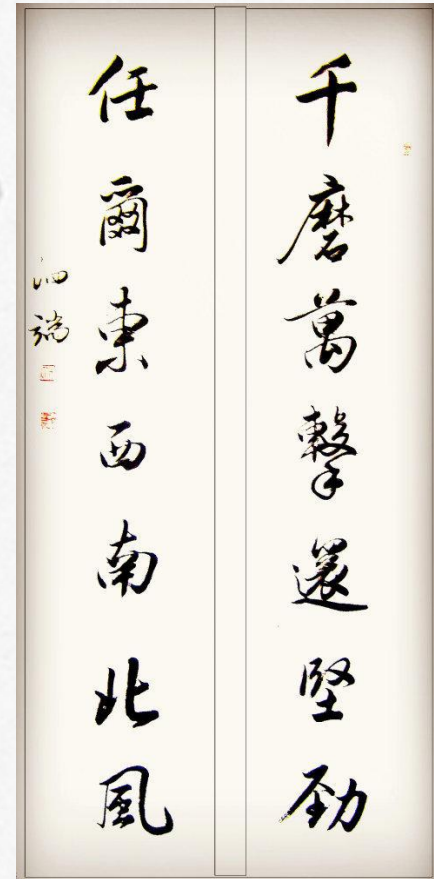 千磨萬擊還堅勁
任爾東西南北風
泗端